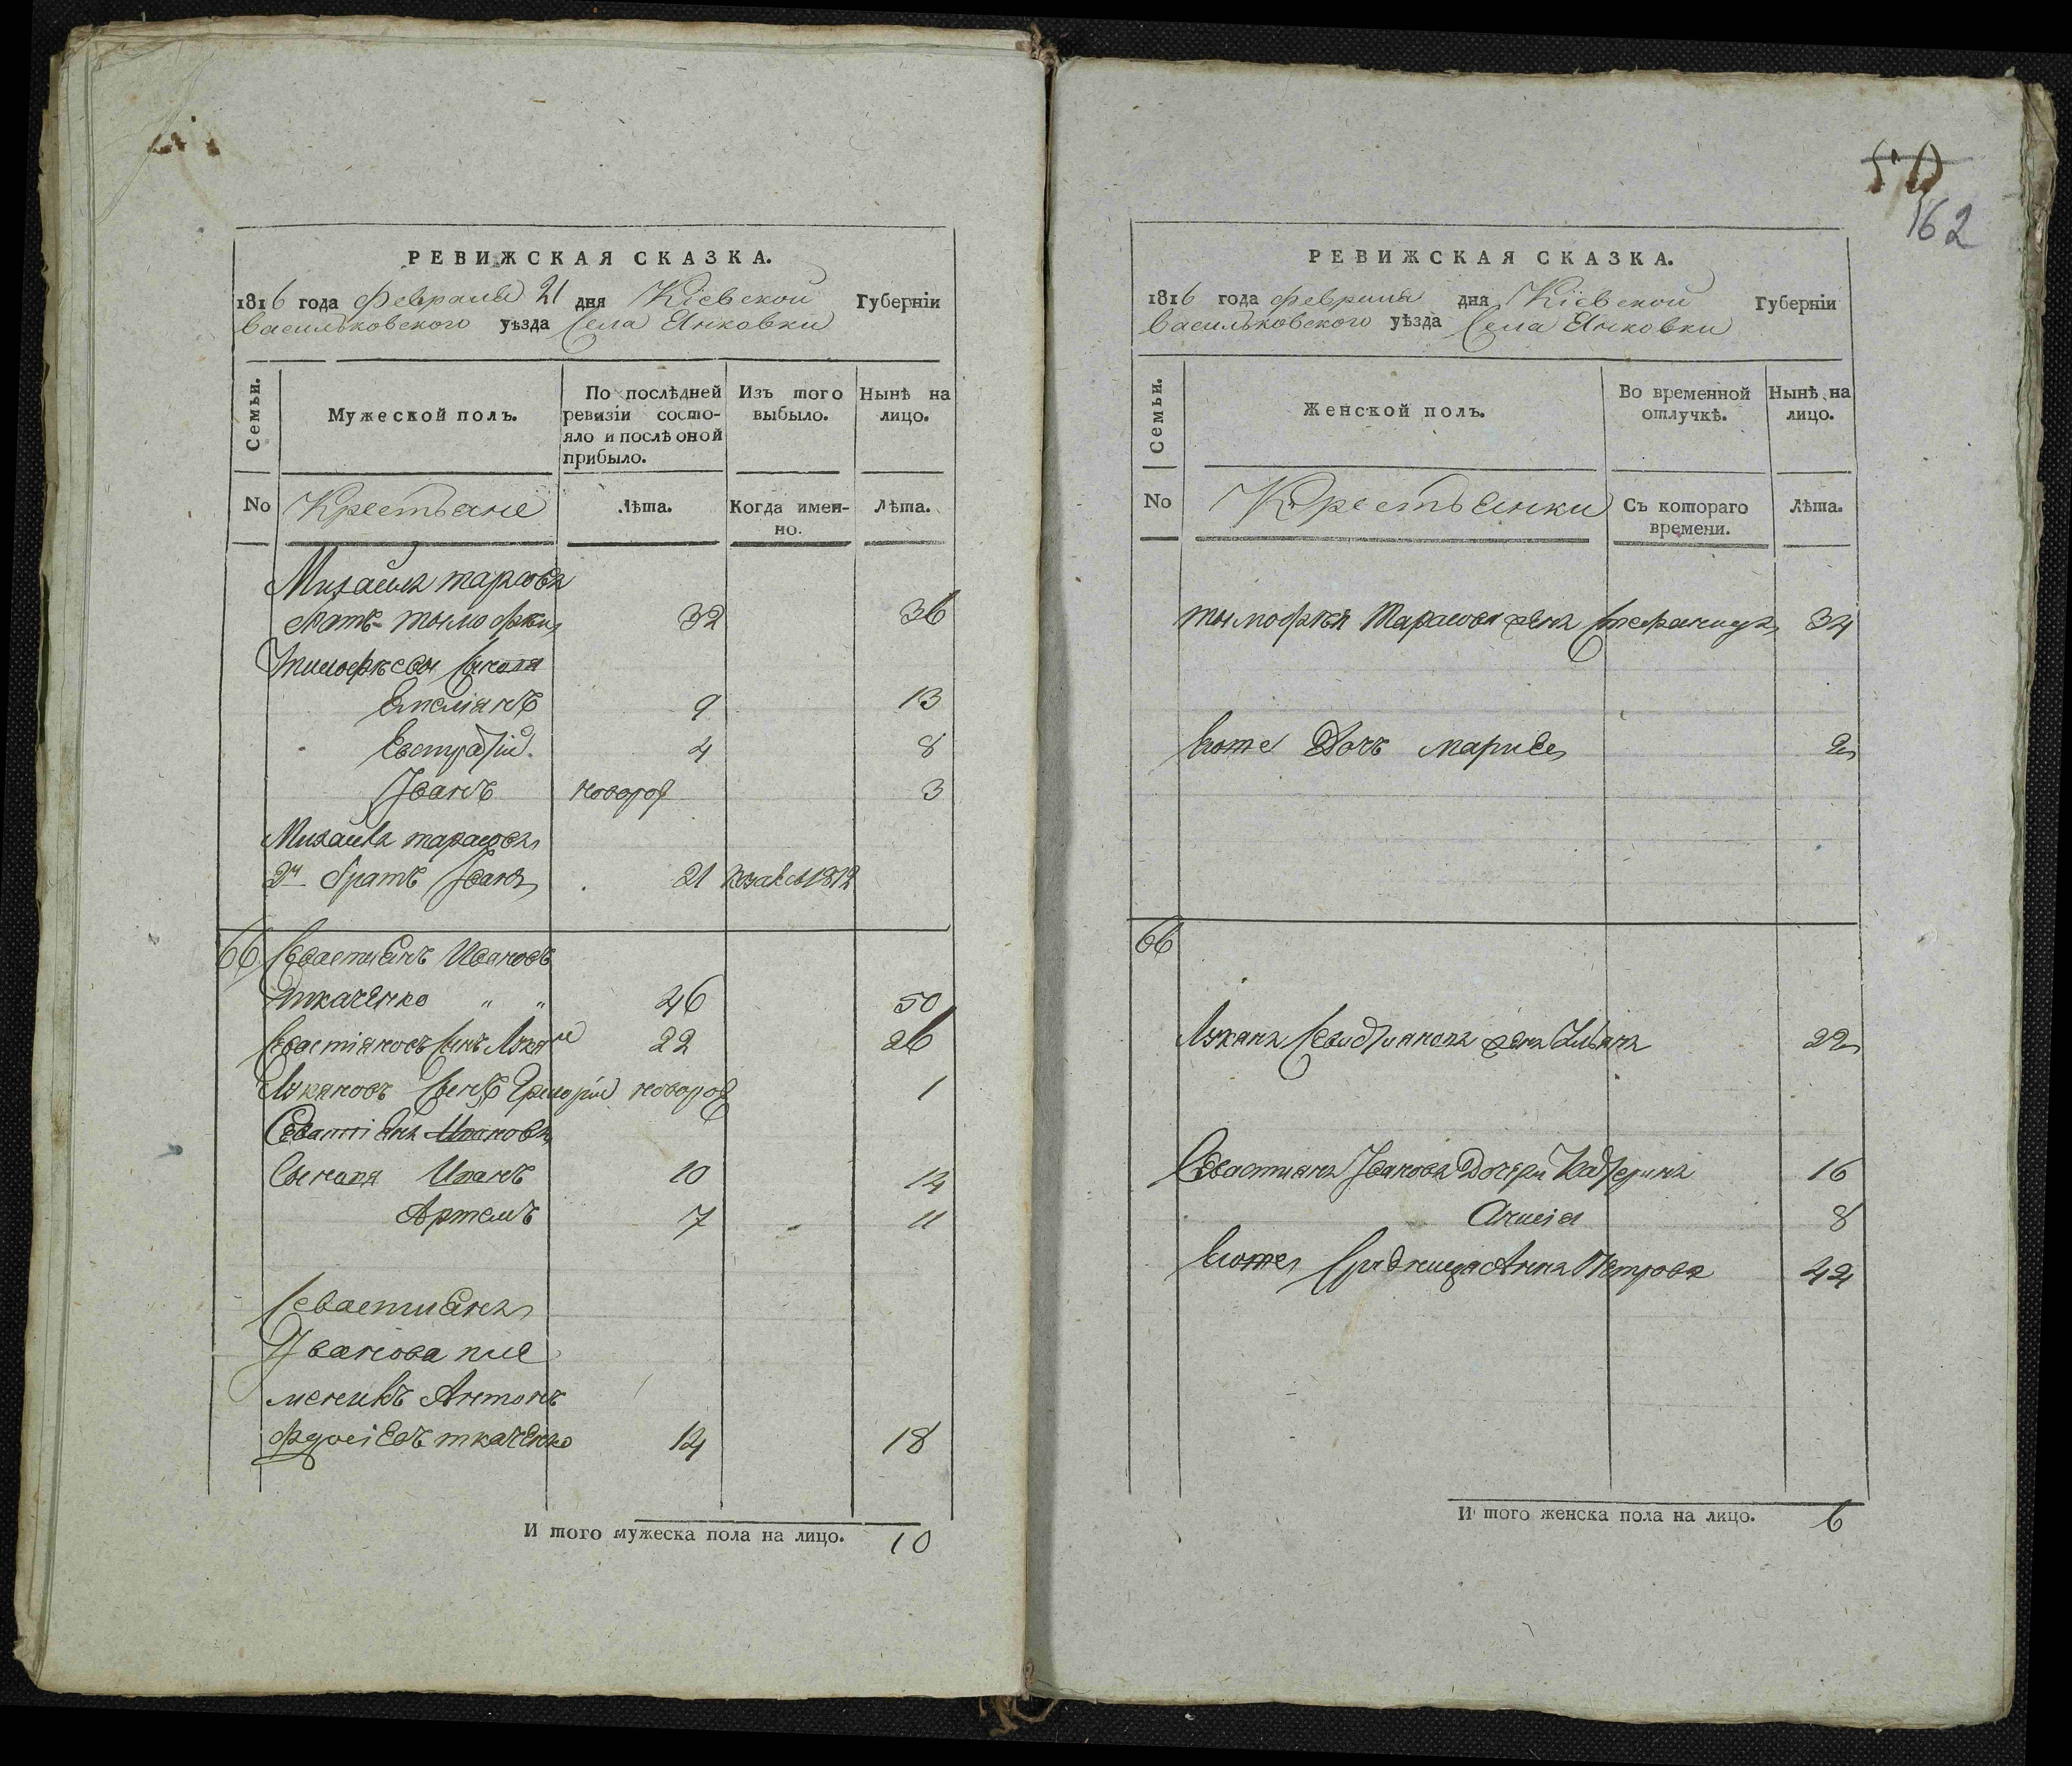 РЕВИЖСКАЯ СКАЗКА.
1816 года февраля 21 дня Кіевской Губерніи
Васильковского уѣзда Села Янковки
Семьи.
Мужеской полъ.
По послѣдней ревизіи состо-
яло и послѣ оной
прибыло.
Изъ того
выбыло.
Нынѣ на
лицо.
No
Крестьяне
Лѣта.
Когда имен-
но.
Лѣта.
Михайла тарасова
братъ тымофѣи 32 36
тимофѣевы Сыновя
Емеліянъ 9 13
Евстратій 4 8
Іванъ новорож 3
Михайла тарасова
2й братъ Іванъ 21 1812
66 Севастиянъ Ивановъ
ткаченко " " 46 50
Севастіяновъ сынъ Лукянъ 22 26
Лукяновъ Сынъ Григорій новорож 1
Севастіяна Иванова
Сыновя Иванъ 10 14
Артемъ 7 11
Севастияна
Іванова пле
меникъ Антонъ
ткаченко 14 18
И того мужеска пола на лицо. 10
50
162
РЕВИЖСКАЯ СКАЗКА.
1816 года февраля дня Кіевской Губерніи
Васильковского уѣзда Села Янковки
Семьи.
Женской полъ.
Во временной
отлучкѣ.
Нынѣ на
лицо.
No
Крестьянки
Съ котораго
времени.
Лѣта.
тымофѣя Тарасова жена Стефанида 34
Егоже Дочъ Мария 2
66
Лукяна Севастиянова жена Улияна 22
Севастияна Іванова Дочери Катерина 16
Анисія 8
Егоже Анна Петрова 42
И того женска пола на лицо. 6